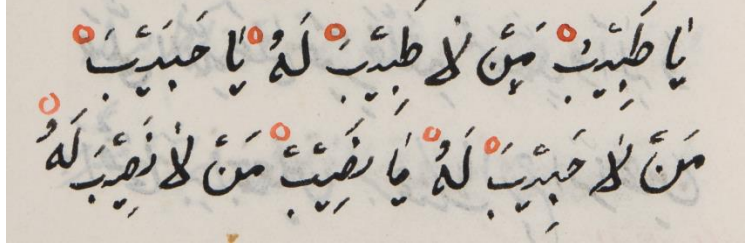 يَا طَبِيْبُ مَنْ لَا طَبِيْبَ لَهُ يَا حَبِيْبَ
مَنْ لَا حَبِيْبَ لَهُ يَا نَصِيْبَ مَنْ لَا نَصِيْبَ لَهُ